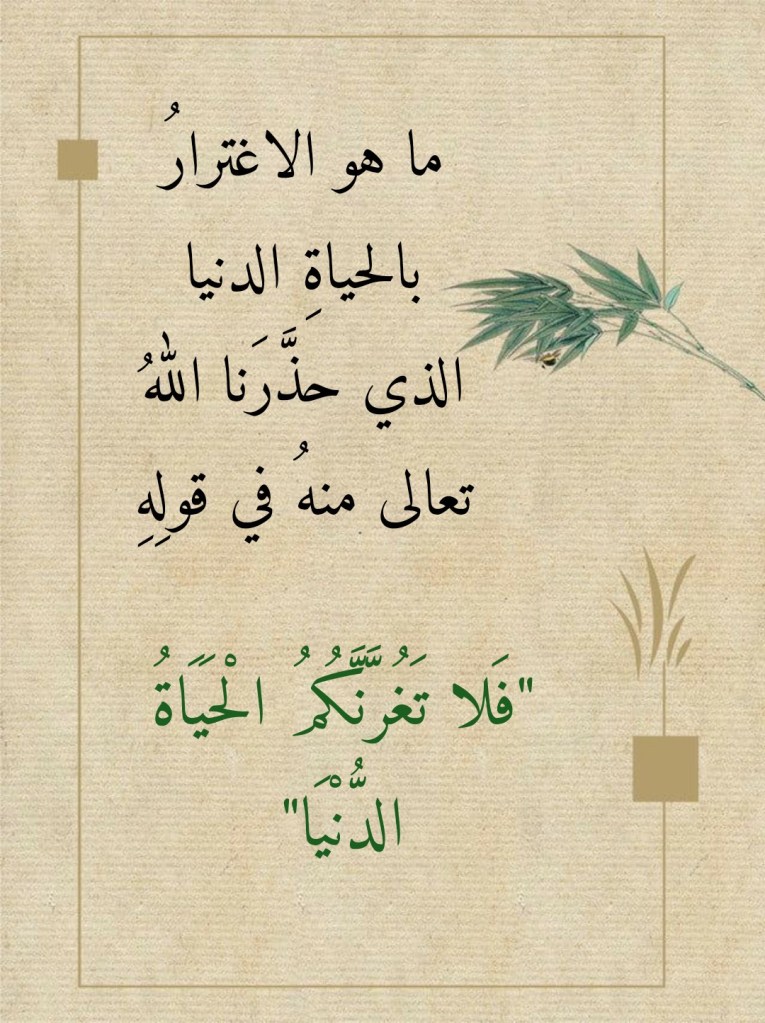 ما هو الاغترارُ
بالحياةِ الدنيا
الذي حذَّرَنا اللهُ
تعالى منهُ في قولِهِ
"فَلا تَغُرَّنَّكُمُ الْحَيَاةُ
الدُّنْيَا"